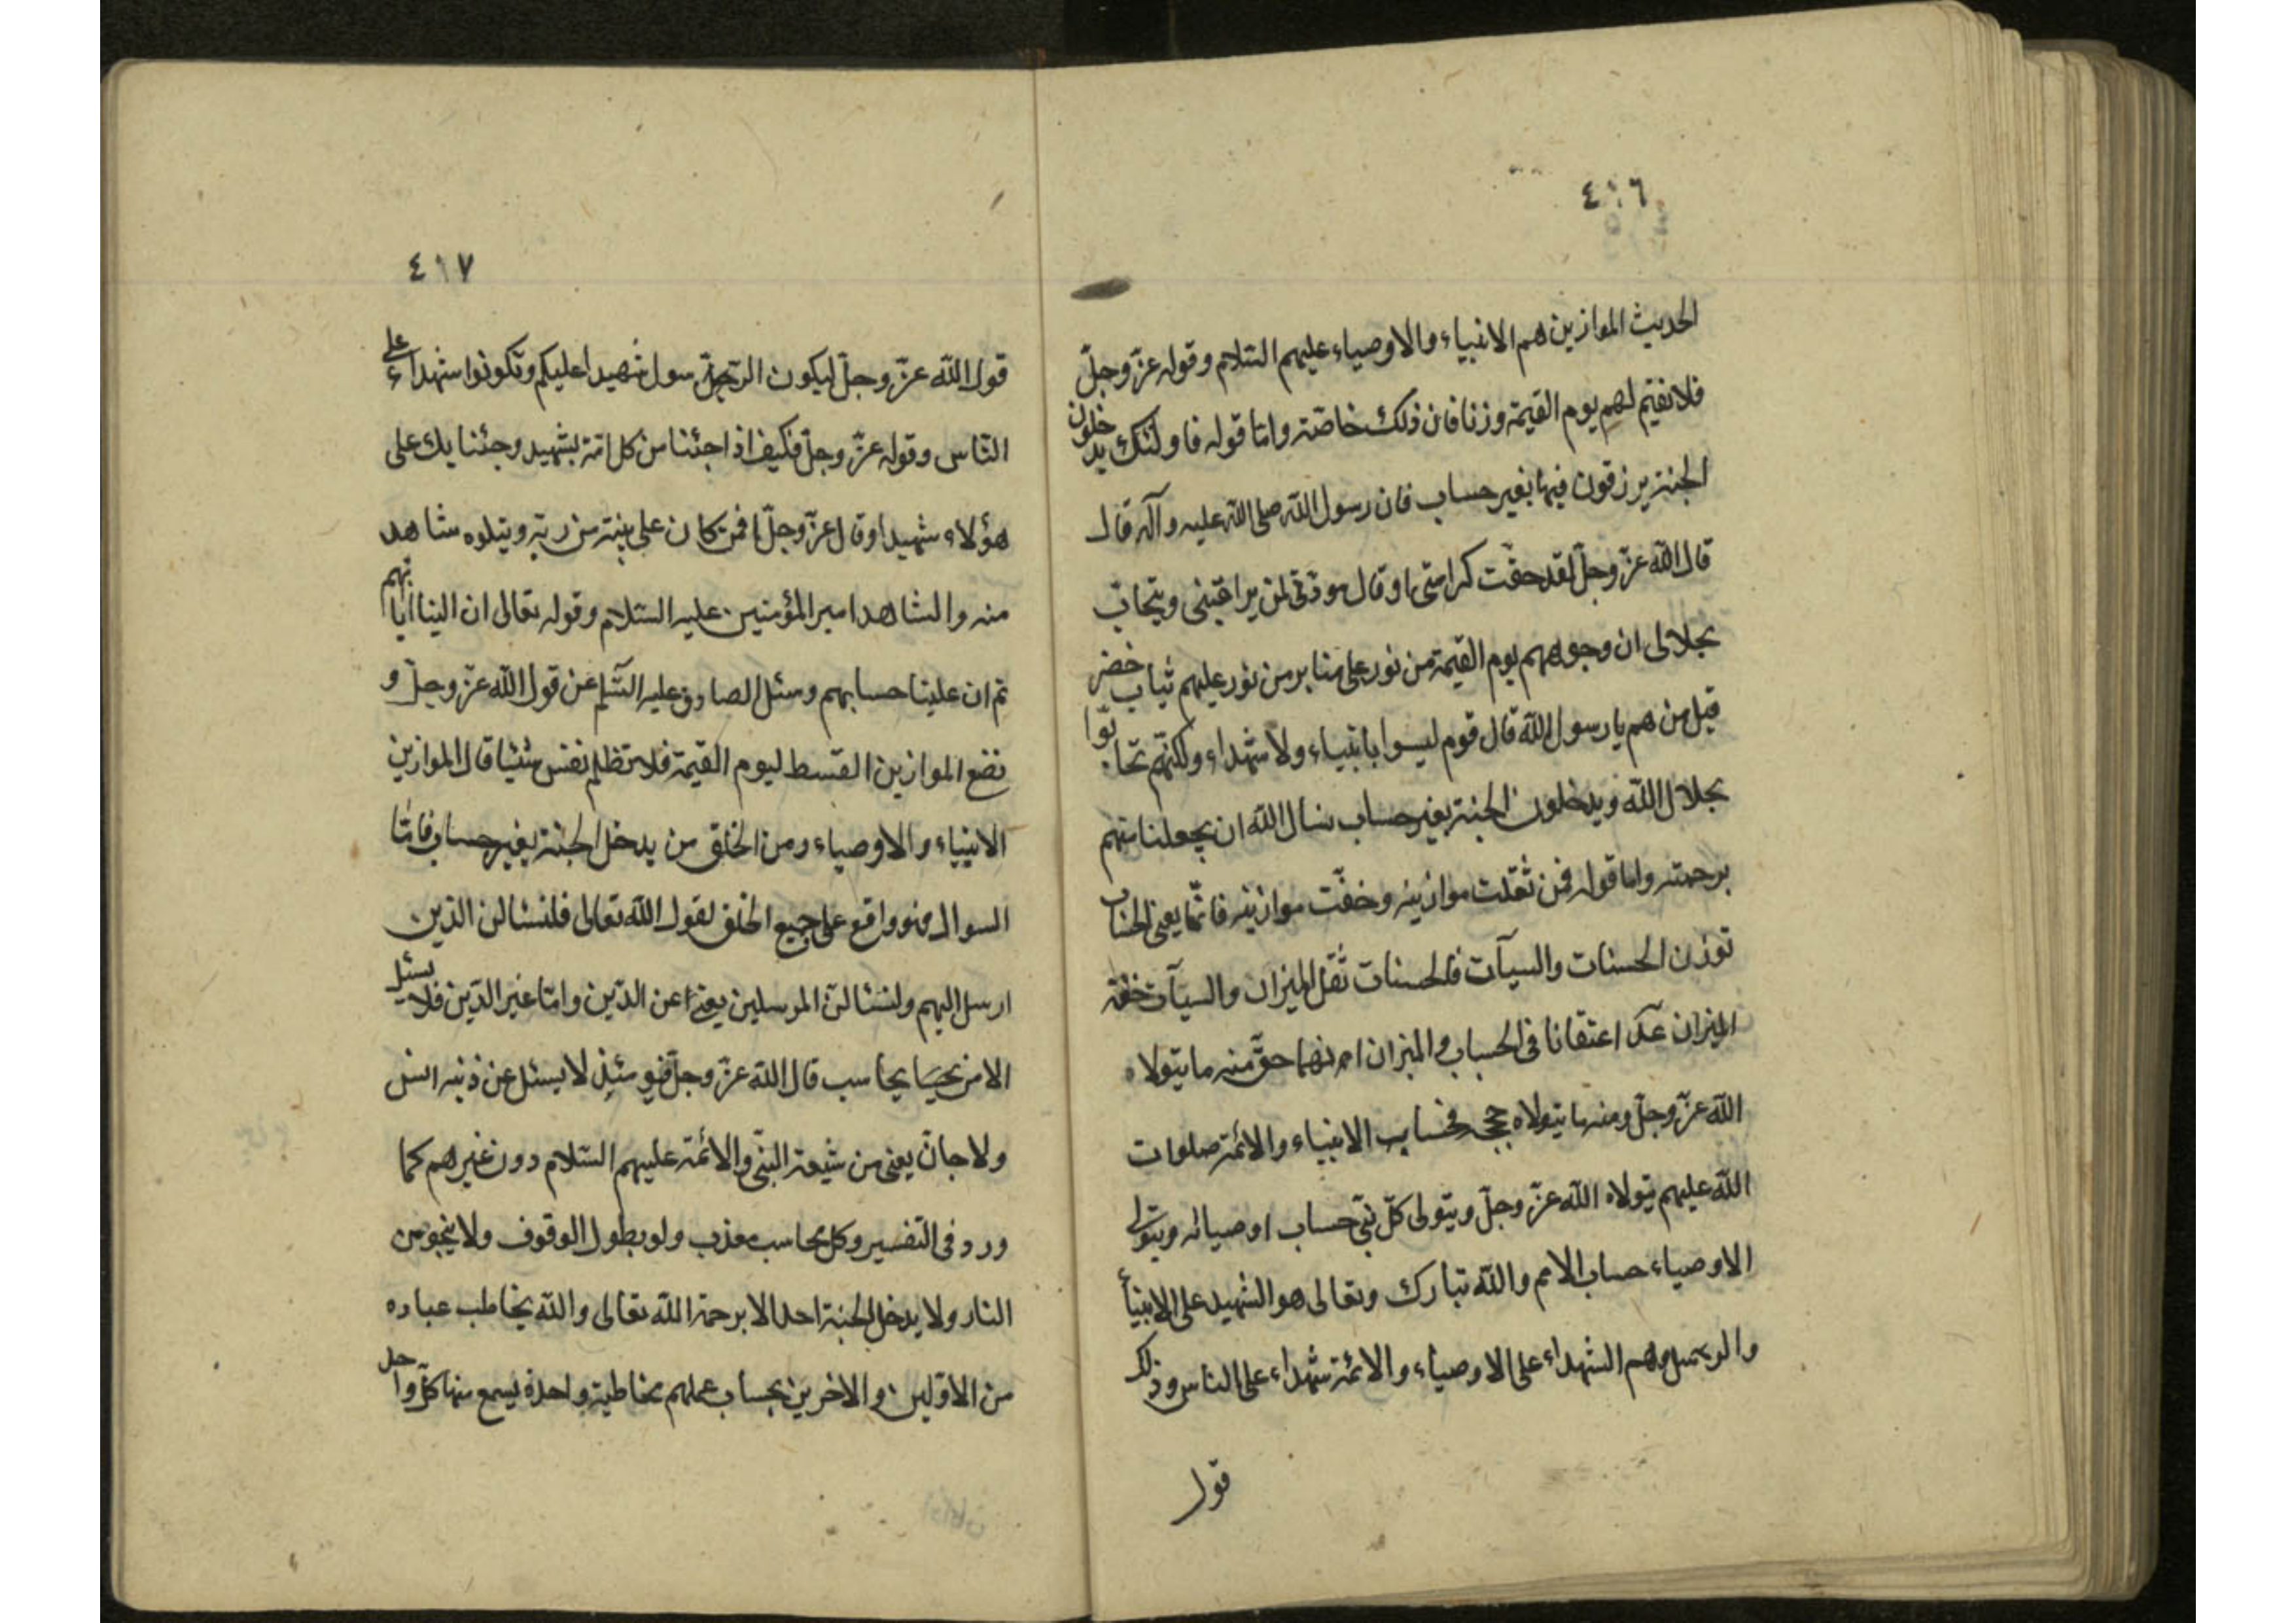 ٤١٦
الحديث الموازين هم الانبياء والاوصياء عليهم السّلام وقوله عزّ وجلّ
فلا نقيم لهم يوم القيمة وزنا فان ذلك خاصّة وامّا قوله فاولئك يدخلون
الجنة يرزقون فيها بغير حساب فان رسول اللّه صلى اللّه عليه وآله قال
قال اللّه عزّ وجلّ لقد حقّت كرامتى او قال مودّتى لمن يراقبنى ويتحابّ
بجلالى ان وجوههم يوم القيمة من نور على منابر من نور عليهم ثياب خضر
قيل من هم يا رسول اللّه قال قوم ليسوا بانبياء ولا شهداء ولكنّهم تحابّوا
بجلال اللّه ويدخلون الجنة بغير حساب نسال اللّه ان يجعلنا منهم
برحمته واما قوله فمن ثقلت موازينه وخفّت موازينه فانّما يعنى الحساب
توزن الحسنات والسيآت فالحسنات ثقل الميزان والسيآت خفّة
الميزان عد اعتقانا فى الحساب والميزان انهما حقّ منه ما يتولاه
اللّه عزّ وجلّ ومنه ما يتولاه حججه فحساب الانبياء والائمّة صلوات
اللّه عليهم يتولاه اللّه عزّ وجلّ ويتولى كلّ نبىّ حساب اوصيائه ويتولى
الاوصياء حساب الامم واللّه تبارك وتعالى هو الشهيد على الانبيأ
والرسل وهم الشهداء على الاوصياء والائمّة شهداء على الناس وذلك
قول
٤١٧
قول اللّه عزّ وجلّ ليكون الرسول شهيدا عليكم وتكونوا شهداء على
النّاس وقوله عزّ وجلّ فكيف اذا جئنا من كل امّة بشهيد وجئنا بك على
هؤلاء شهيدا وقال عزّ وجلّ افمن كان على بيّنة من ربّه ويتلوه شاهد
منه والشاهد امير المؤمنين عليه السّلام وقوله تعالى ان الينا ايابهم
ثم ان علينا حسابهم وسئل الصادق عليه السّلم عن قول اللّه عزّ وجلّ و
نضع الموازين القسط ليوم القيمة فلا تظلم نفس شيئا قال الموازين
الانبياء والاوصياء ومن الخلق من يدخل الجنّة بغير حساب فامّا
السوال فهو واقع على جميع الخلق لقول اللّه تعالى فلنسئالن الذين
ارسل اليهم ولنسئالنّ المرسلين يعنى عن الدّين وامّا غير الدّين فلا يسئل
الا من يحاسب قال اللّه عزّ وجلّ فيومئذ لا يسئل عن ذنبه انس
ولا جانّ يعنى من شيعة النبّى والائمّة عليهم السّلام دون غيرهم كما
ورد فى التفسير وكل محاسب معذب ولو بطول الوقوف ولا ينجو من
النار ولا يدخل الجنة احد الا برحمة اللّه تعالى واللّه يخاطب عباده
من الاوّلين والاخرين بحساب عملهم مخاطبة واحدة يسمع منها كلّ واحد